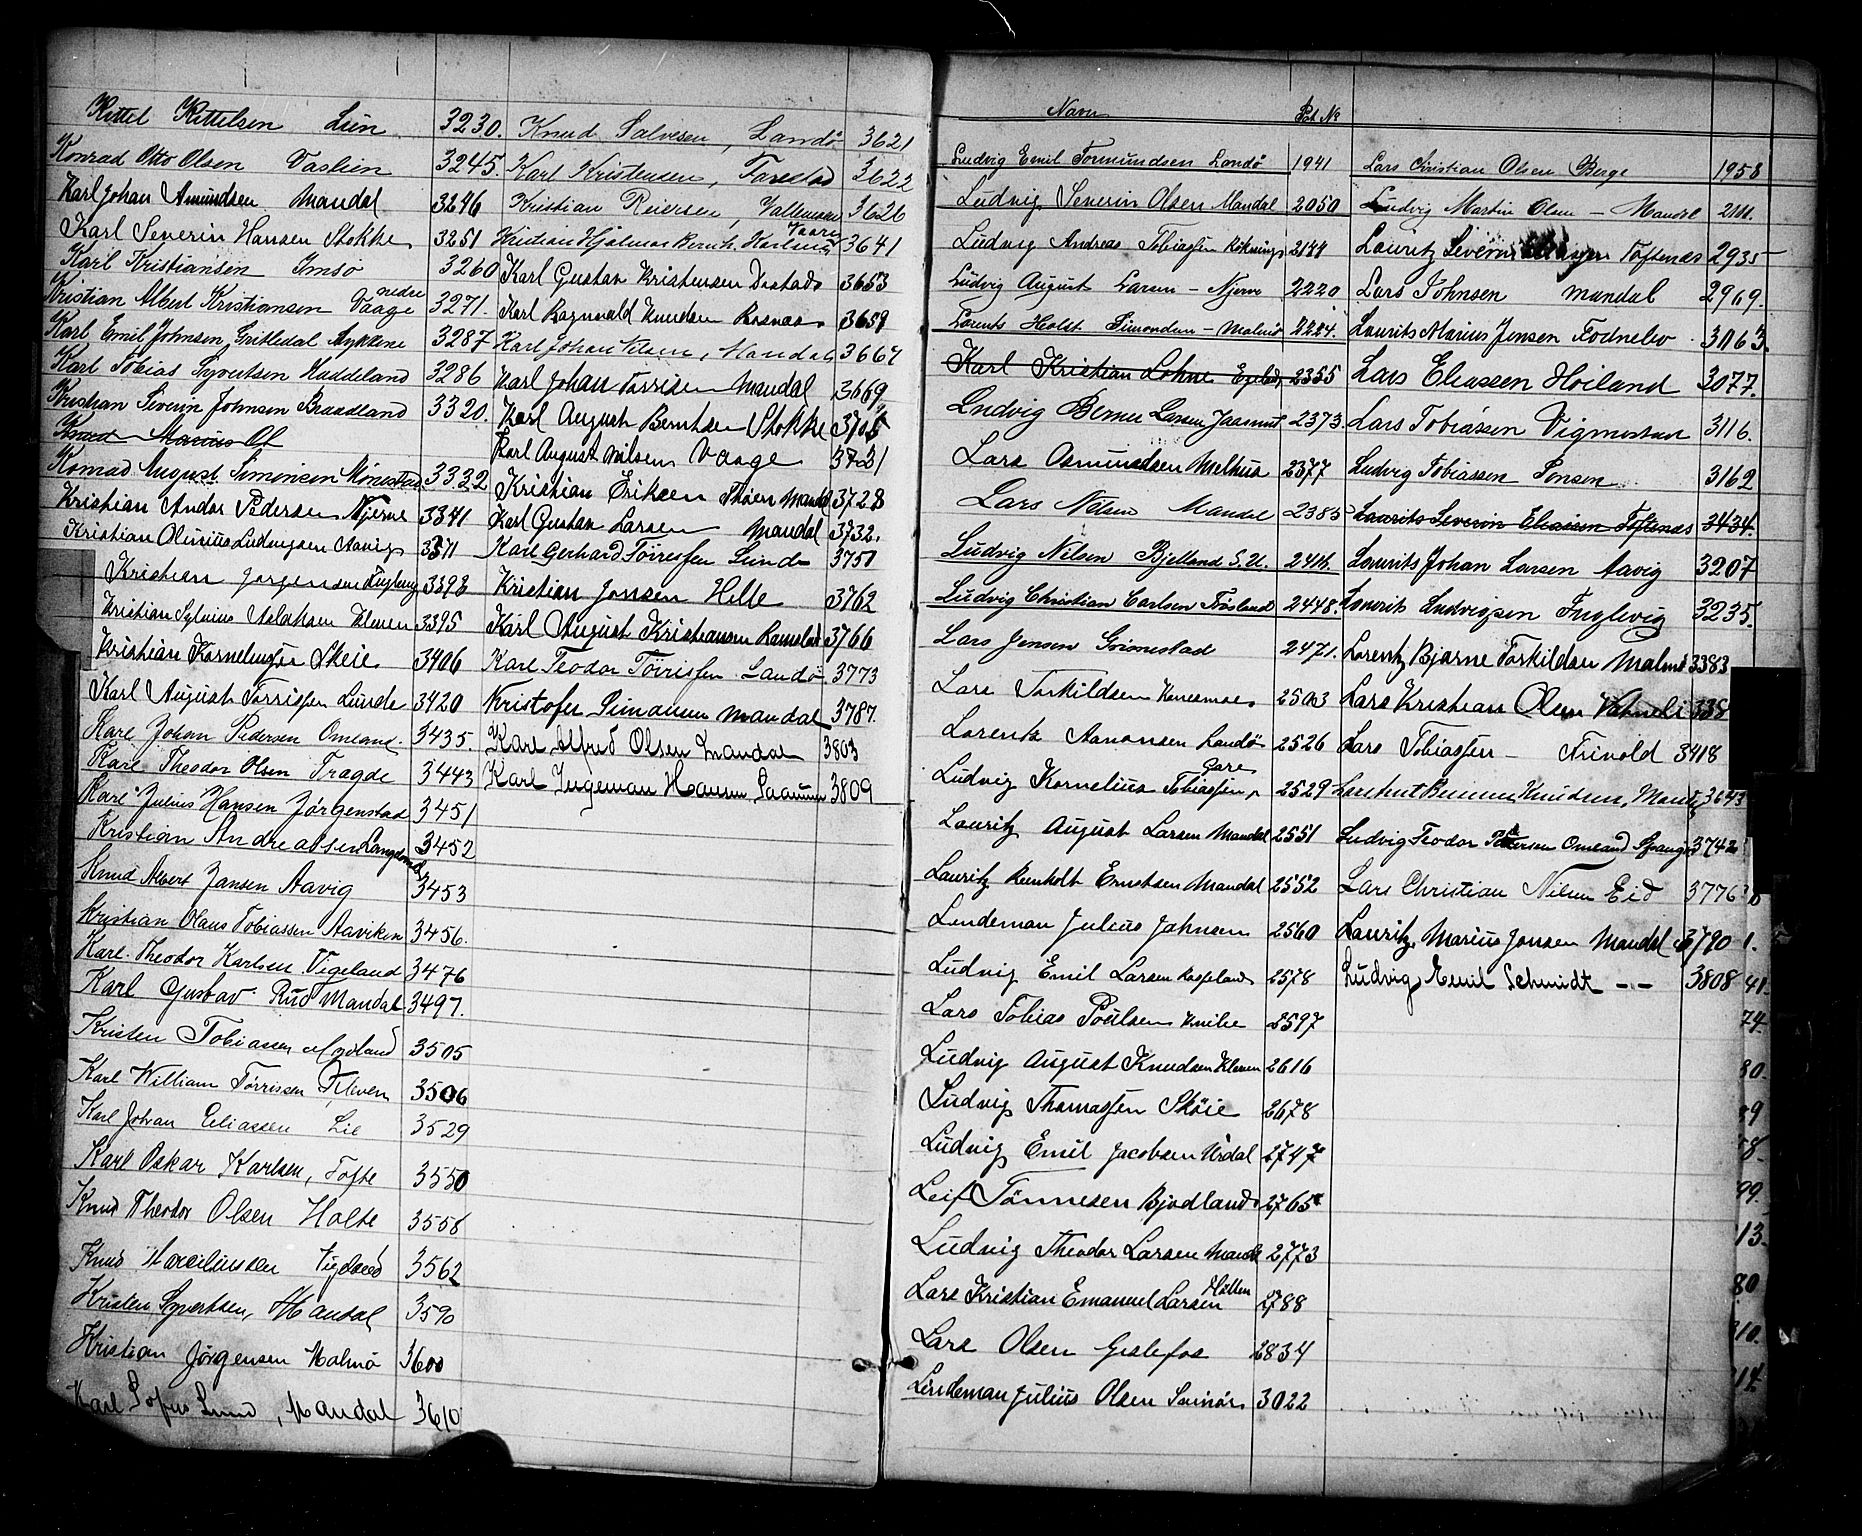 Kittel Kittelsen Lien 3230.
Konrad Otto Olsen Vaslien 3245.
Karl Johan Amundsen Mandal 3246
Karl Severin Hansen Stokke 3251
Karl Kristiansen Imsø 3260
Kristian Albert Kristiansen nedre Vaage 3271.
Karl Emil Johnsen 3287
Karl Tobias Syvertsen Haddeland 3286
Kristian Severin Johnsen Braadland 3320.
Knud Marius Ol
Konrad August Simonsen Mønestad 3332
Kristian Andor Pedersen Njerve 3341
Kristian Olinius Ludvigsen Aavig 3371
Kristian Jørgensen 3393
Kristian Sylvius Aslaksen Kleven 3395
Kristian Korneliussen Skeie 3406
Karl August Torrissen Lunde 3420
Karl Johan Pedersen Omland. 3435.
Karl Theodor Olsen Tragde 3443
Karl Julius Hansen Jørgenstad 3451
Kristian Andreassen 3452
Knud Albert Jansen Aavig 3453
Kristian Olaus Tobiassen Aaviken 3456.
Karl Theodor Karlsen Vigeland 3476
Karl Gustav Rud Mandal 3497.
Kristen Tobiassen Møland 3505
Karl William Tørrissen Kleven 3506
Karl Johan Eliassen Lie 3529
Karl Oskar Karlsen, Tofte 3550
Knud Theodor Olsen Holte 3558
Knud Marceliussen Vigeland 3562
Kristen Syvertsen, Mandal 3590
Kristian Jørgensen Malmø 3600
Karl Sofus Lund, Mandal 3610
Knud Salvesen, Landø 3621
Karl Kristensen, Farestad 3622
Kristian Reiersen, 3626
Kristian Hjalmar Bernh. Karlsen 3641
Karl Gustav Kristensen 3653
Karl Ragnvald Knudsen Rosnes 3659
Karl Johan Nilsen, Mandal 3667
Karl Johan Torrisen Mandal 3669
Karl August Berntsen Stokke 3705
Karl August Nilsen Vaage 3721
Kristian Eriksen Skøien Mandal 3728
Karl Gustav Larsen Mandal 3732.
Karl Gerhard Tørresen Lunde 3751
Kristian Jonsen Helle 3762
Karl August Kristiansen 3766
Karl Teodor Tørrissen Landø 3773
Kristofer Simonsen Mandal 3787.
Karl Alfred Olsen Mandal 3803
Karl Ingeman Hansen 3809
Navn Pat No
Ludvig Emil Tormundsen Landø 1941
Ludvig Severin Olsen Mandal 2050
Ludvig Andreas Tobiassen 2144
Ludvig August Larsen - Njerve 2220
Lorents Holst Simonsen - Malmø 2224.
Karl Kristian Lohne 2355
Ludvig Berner Larsen 2373.
Lars Osmundsen Melhus 2377
Lars Nilsen Mandal 2385
Ludvig Nilsen Bjelland S.U. 2414.
Ludvig Christian Carlsen 2448.
Lars Jensen Grimestad 2471.
Lars Torkildsen 2503
Lorentz Aanonsen Landø 2526
Ludvig Kornelius Tobiassen, 2529
Lauritz August Larsen Mandal 2551
Lauritz Reinholt Erntsen Mandal 2552
Lindeman Julius Johnsen 2560
Ludvig Emil Larsen 2578
Lars Tobias Poulsen 2597
Ludvig August Knudsen Kleven 2616
Ludvig Thomassen Skøie 2678
Ludvig Emil Jacobsen Urdal 2747
Leif Tønnesen Bjodland 2765
Ludvig Theodor Larsen Mandal 2773
Lars Kristian Emanuel Larsen Holten 2788
Lars Olsen Geslefos 2834
Lindeman Julius Olsen 3022
Lars Christian Olsen Berge 1958
Ludvig Martin Olsen - Mandal 2111.
Lauritz Severin Toftenes 2935
Lars Johnsen Mandal 2969.
Laurits Marius Jensen Fodnebo 3063.
Lars Eliassen Høiland 3077.
Lars Tobiassen Vigmostad 3116.
Ludvig Tobiassen 3162
Laurits Severin Eliassen Toftenes 3434.
Laurits Johan Larsen Aavig 3207
Laurits Ludvigsen Inglevig 3235.
Lorentz Bjarne Torkildsen Malmø 3383
Lars Kristian Olsen 338
Lars Tobiassen - Frivold 3418
Knudsen, Mandal 3643
Ludvig Teodor Pedersen Omland 3742
Lars Christian Nilsen Eid 3776
Lauritz Marius Jonsen Mandal 3790 1.
Ludvig Emil Schmidt - - 3808 41.
74.
80.
99.
13.
80
10.
14.